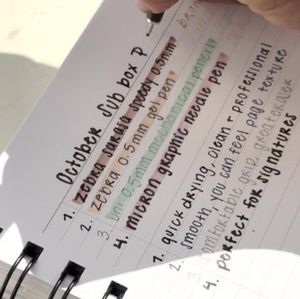 October Sub box P
1. zebra sarasa speedy 0.5mm
2. zebra 0.5mm gel pen
3. 0.5mm mechanical pencil
4. micron graphic needle pen
1. quick drying, clean + professional
2. smooth, you can feel page texture
3. comfortable grip, great eraser
4. perfect for signatures